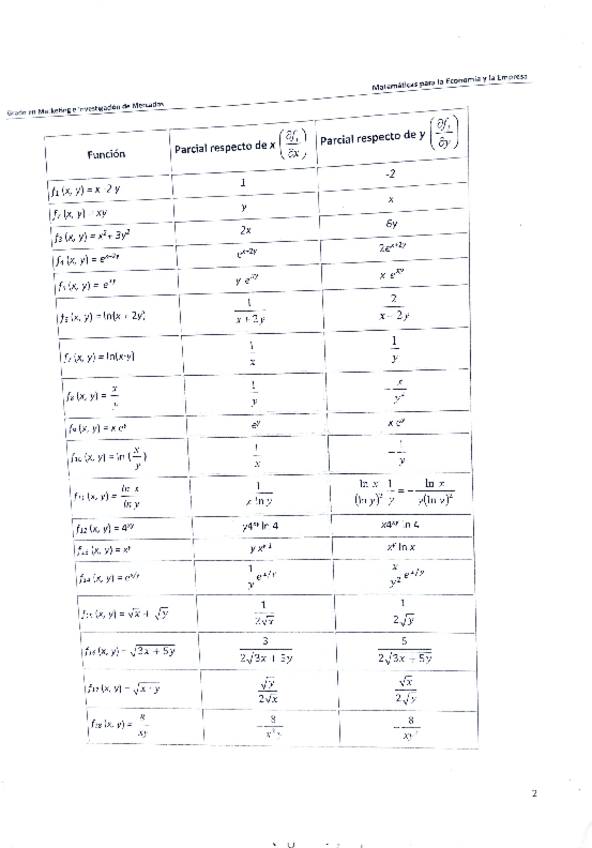 Matemáticas para la Economía y la Empresa
Grado en Marketing e Investigación de Mercados
Función Parcial respecto de x (∂f₁/∂x) Parcial respecto de y (∂f₁/∂y)
f₁ (x, y) = x -2 y 1 -2
f₂ (x, y) = xy y x
f₃ (x, y) = x² + 3y² 2x 6y
f₄ (x, y) = eˣ⁺²ʸ eˣ⁺²ʸ 2eˣ⁺²ʸ
f₅ (x, y) = eˣʸ y eˣʸ x eˣʸ
(x, y) = ln(x + 2y) 1/(x + 2y) 2/(x + 2y)
f₇ (x, y) = ln(x·y) 1/x 1/y
f₈ (x, y) = x/y 1/y -x/y²
f₉ (x, y) = x eʸ eʸ x eʸ
f₁₀ (x, y) = ln (x/y) 1/x -1/y
f₁₁ (x, y) = ln x/ln y 1/(x ln y) ln x/(ln y)² 1/y = - ln x/(y(ln y)²)
f₁₂ (x, y) = 4ˣʸ y4ˣʸ ln 4 x4ˣʸ ln 4
(x, y) = xʸ y xʸ⁻¹ xʸ ln x
f₁₄ (x, y) = eˣ/ʸ 1/y eˣ/ʸ x/y² eˣ/ʸ
f₁₅ (x, y) = √x + √y 1/(2√x) 1/(2√y)
f₁₆ (x, y) = √(3x + 5y) 3/(2√(3x + 5y)) 5/(2√(3x + 5y))
f₁₇ (x, y) = √(x · y) √y/(2√x) √x/(2√y)
f₁₈ (x, y) = 8/xy -8/(x²y) -8/(xy²)
2